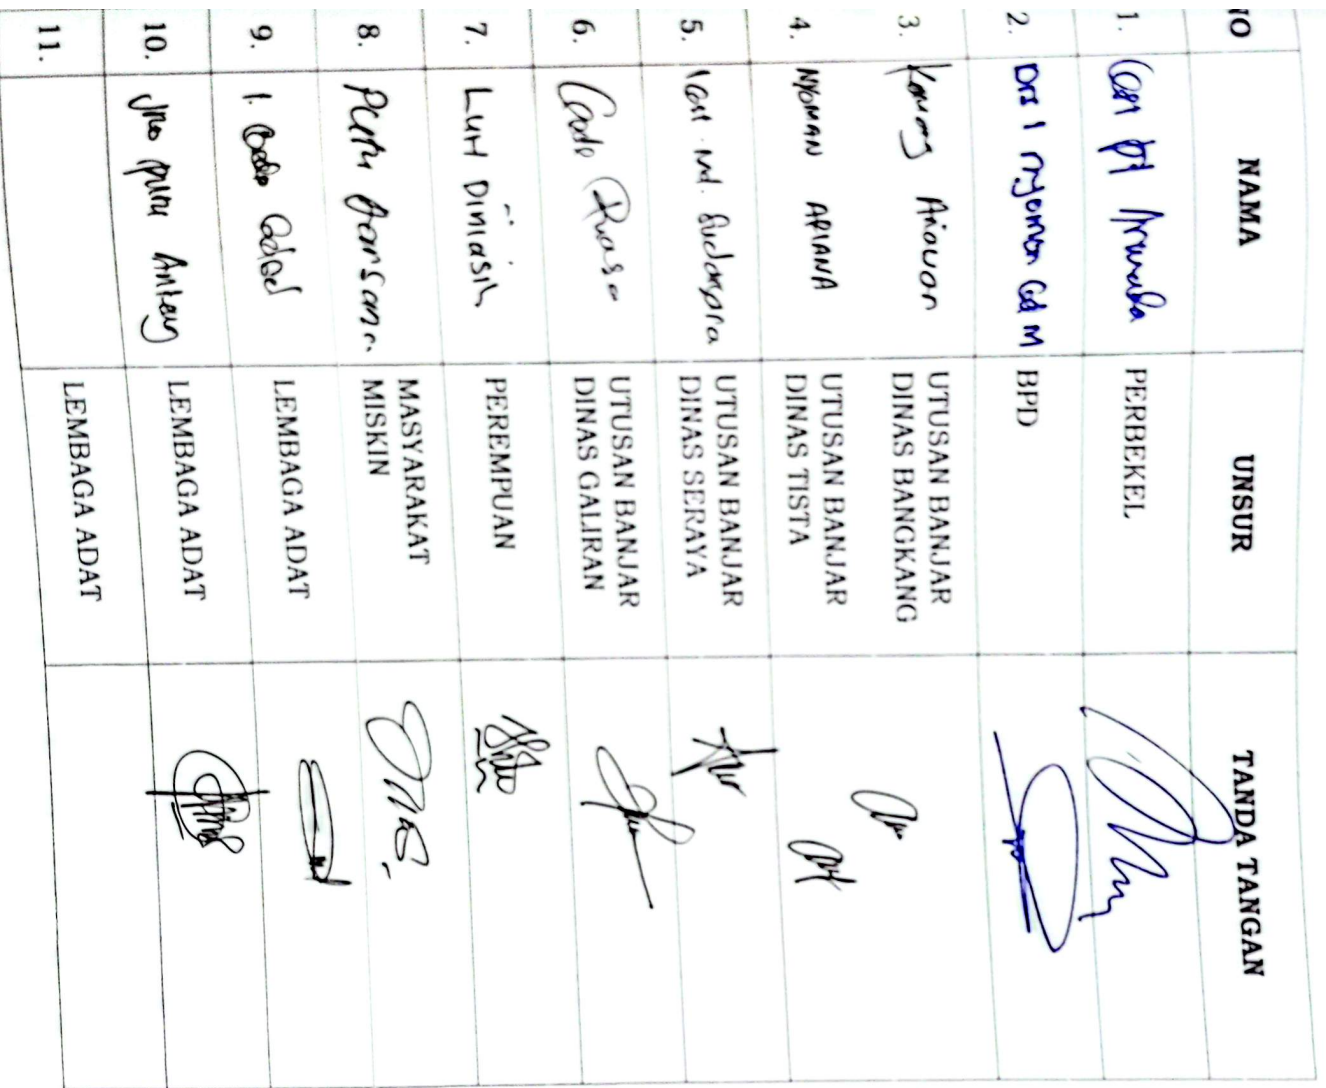 NO NAMA UNSUR TANDA TANGAN
1. PERBEKEL
2. Drs I nyoman Gd M BPD
3. Komang UTUSAN BANJAR
DINAS BANGKANG
4. NYOMAN APIANA UTUSAN BANJAR
DINAS TISTA
5. UTUSAN BANJAR
DINAS SERAYA
6. UTUSAN BANJAR
DINAS GALIRAN
7. LUH DINIASIH PEREMPUAN
8. Putu MASYARAKAT
MISKIN
9. LEMBAGA ADAT
10. Jro putu Anteng LEMBAGA ADAT
11. LEMBAGA ADAT